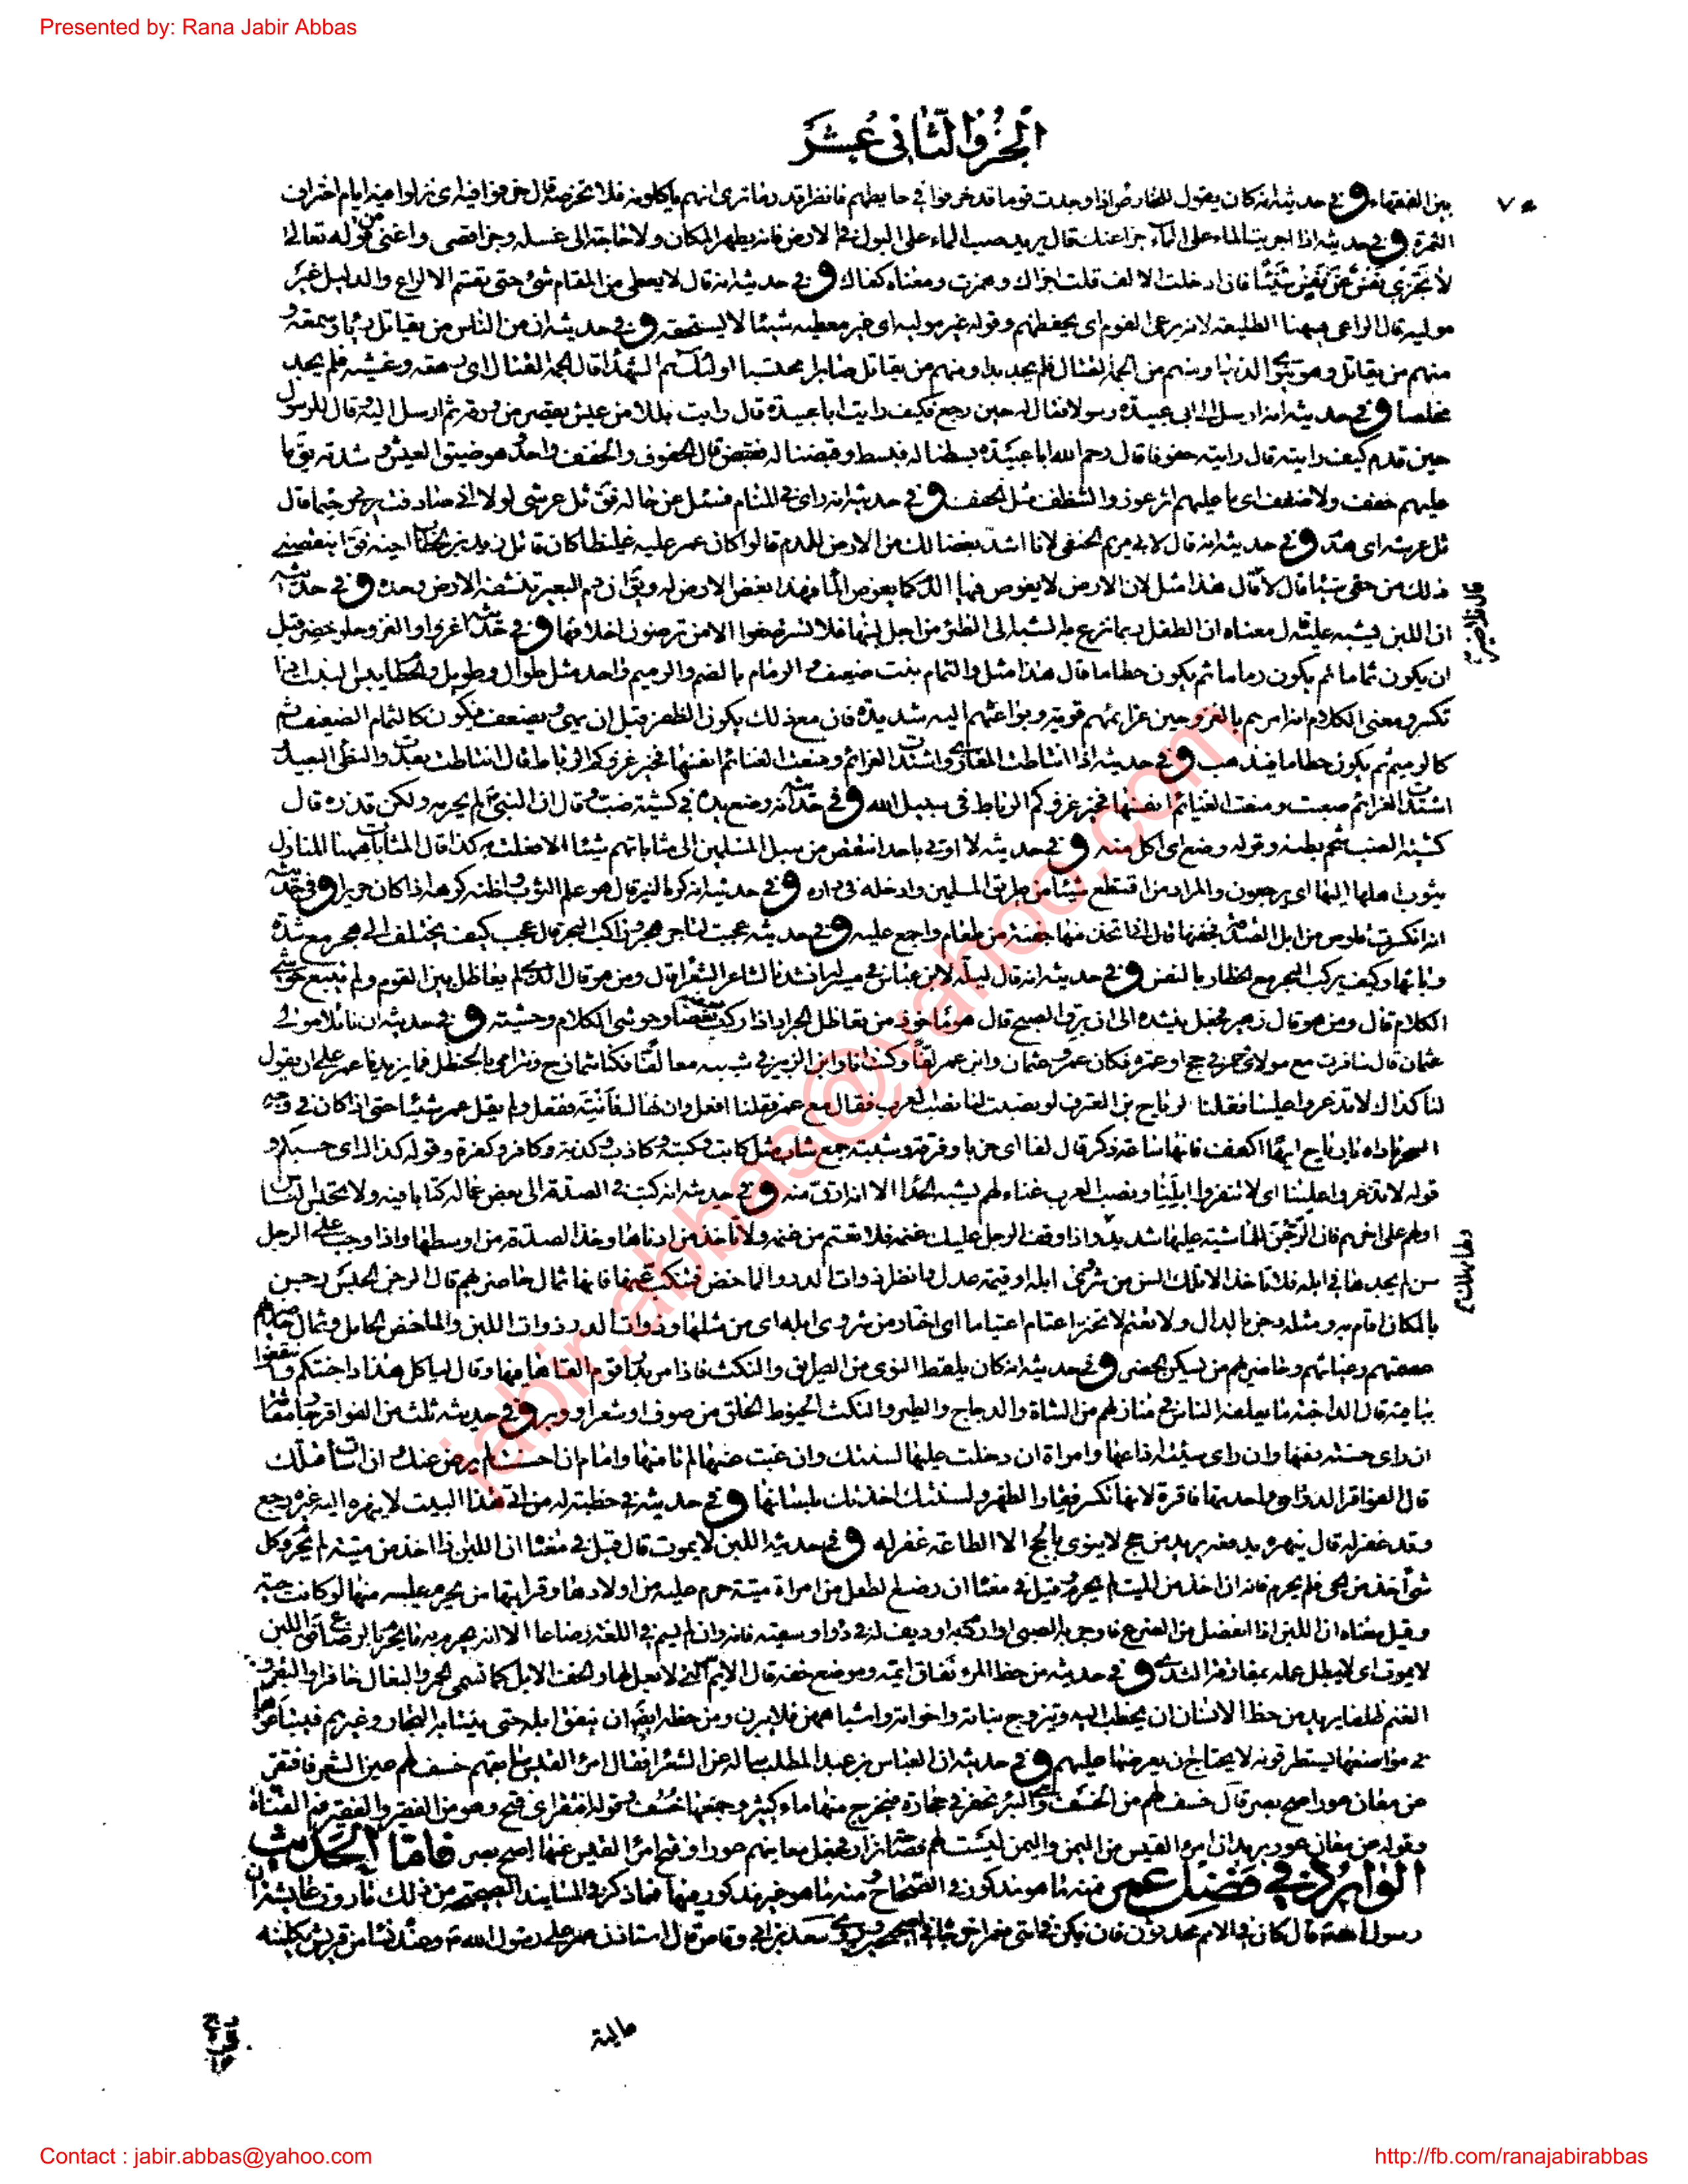 Presented by: Rana Jabir Abbas
الجزو الثانی عشر
بین الفقهاء و فی حدیثه انه کان یقول للخارص اذا وجدت قوما قد خرفوا فی حایطهم فانظر قدر ما تری انهم یاکلونه فلا تخرصه قال خرفوا فیه ای نزلوا فیه ایام اختراف
الثمرة و فی حدیثه اذا اجریت الماء علی الماء جزا عنک قال یرید صب الماء علی البول فی الارض فانه یطهر المکان ولا حاجة الی غسله وجزا قضی واغنی من قوله تعالی
لا تجزی نفس عن نفس شیئا فان ادخلت الالف قلت اجزاک وهمزت ومعناه کفاک و فی حدیثه انه قال لا یعطی من المغانم شئ حتی تقسم الا لراع والدلیل غیر
مولیه قال الراعی ههنا الطلیعة لانه یرعی القوم ای یحفظهم وقوله غیر مولیه ای غیر معطیه شیئا لا یستحقه و فی حدیثه ان من الناس من یقاتل ریاء وسمعة و
منهم من یقاتل وهو ینوی الدنیا ومنهم من الجمه القتال فلم یجد بدا ومنهم من یقاتل صابرا محتسبا اولئک هم الشهداء قال الجمه القتال ای رهقه وغشیه فلم یجد
مخلصا و فی حدیثه انه ارسل الی ابی عبیدة رسولا فقال له حین رجع فکیف رایت ابا عبیدة قال رایت بللا من عیش یقصر من رزقه ثم ارسل الیه وقال للرسول
حین قدم کیف رایته قال رایته حفوفا قال رحم الله ابا عبیدة بسطنا له فبسط وقبضنا له فقبض قال الحفوف والحفف واحد هو ضیق العیش و شدته یقال ما
علیهم حفف ولا ضفف ای ما علیهم اثر عوز والشظف مثل الحفف و فی حدیثه انه رای فی المنام فسئل عن حاله فقال ثل عرشی لولا انی صادفت ربی رحیما قال
ثل عرشه ای هدم و فی حدیثه انه قال لابی مریم الحنفی لانا اشد بغضا لک من الارض للدم قالوا کان عمر علیه غلیظا کان قاتل زید بن الخطاب اخیه فقال اینقصنی
ذلک من حقی شیئا قال لا قال هذا مثل لان الارض لا یغوص فیها الدم کما یغوص الماء فهذا بغض الارض له ویقال ان دم البعیر تنشفه الارض وحده و فی حدیثه
ان اللبن یشبه علیه قال معناه ان الطفل ربما نزع به الشبه الی الظئر من اجل لبنها فلا تسترضعوا الا من ترضون اخلاقها و فی حدیثه اغزوا والغزو حلو خضر قبل
ان یکون ثماما ثم یکون رماما ثم یکون حطاما قال هذا مثل والثمام نبت ضعیف و الرمام بالضم والرمیم واحد مثل طوال وطویل والحطام یبس النبت اذا
تکسر ومعنی الکلام انه امرهم بالغزو حین عزائمهم قویة وبواعثهم الیه شدیدة فان مع ذلک یکون الظفر قبل ان یهن ویضعف فیکون کالثمام الضعیف ثم
کالرمیم ثم یکون حطاما فیذهب و فی حدیثه اذا انتاطت المغازی واشتدت العزائم ومنعت الغنائم انفسها فخیر غزوکم الرباط قال انتاطت بعدت والنطی البعید
اشتدت العزائم صعبت ومنعت الغنائم انفسها فخیر غزوکم الرباط فی سبیل الله و فی حدیثه انه وضع یده فی کشیة ضب وقال ان النبی لم یحرمه ولکن قذره قال
کشیة الضب شحم بطنه وقوله وضع ای اکل منه و فی حدیثه لا اوتی باحد انتقص من سبل المسلمین الی مثاباتهم شیئا الا فعلت به کذا قال المثابات ههنا المنازل
یثوب اهلها الیها ای یرجعون والمراد من اقتطع شیئا من طریق المسلمین وادخله فی داره و فی حدیثه انه کره النیر قال هو علم الثوب واظنه کرهه اذا کان حریرا و فی حدیثه
انه انکسرت قلوص من ابل الصدقة فجفنها قال ای اتخذ منها جفنة من طعام واجمع علیه و فی حدیثه عجبت لتاجر هجر وراکب البحر قال عجب کیف یختلف الی هجر مع شدة
وبائها وکیف یرکب البحر مع الخطار بالنفس و فی حدیثه انه قال لیلة لابن عباس فی مسیر له انشدنا لشاعر الشعراء قال ومن هو قال الذی لم یعاظل بین القوم ولم یتبع حوشی
الکلام قال ومن هو قال زهیر فجعل ینشده الی ان برق الصبح قال هو ماخوذ من تعاظل الجراد اذا رکب بعضه بعضا وحوشی الکلام وحشیه و فی حدیثه ان نائلا مولی
عثمان قال سافرت مع مولای عثمان وعمر فی حج او عمرة فکان عمر وعثمان وابن عمر لفا وکنت انا وابن الزبیر فی شببة معنا لفا فکنا نتمازح ونترامی بالحنظل فما یزیدنا عمر علی ان یقول
لنا کذاک لا تذعروا علینا فقلنا لرباح بن المغترف لو نصبت لنا نصب العرب فقال مع عمر فقلنا افعل وان نهاک فانته ففعل ولم یقل عمر شیئا حتی اذا کان فی وجه
السحر ناداه یا رباح ایها اکفف فانها ساعة ذکر قال لفا ای حزبا وفرقة وشببة جمع شاب مثل کاتب وکتبة وکاذب وکذبة وکافر وکفرة وقوله کذاک ای حسبکم و
قوله لا تذعروا علینا ای لا تنفروا ابلنا ونصب العرب غناء لهم یشبه الحداء الا انه ارق منه و فی حدیثه انه کتب فی الصدقة الی بعض عماله کتابا فیه ولا تحبس الناس
اولهم علی اخرهم فان الرجن للماشیة علیها شدید واذا وقف الرجل علیک غنمه فلا تعتم من غنمه ولا تاخذ من ادناها وخذ الصدقة من اوسطها واذا وجب علی الرجل
سن لم یجدها فی ابله فلا تاخذ الا تلک السن من شروی ابله او قیمة عدل وانظر ذوات الدر والماخض فتنکب عنها فانها ثمال حاضرتهم قال الرجن الحبس رجن
بالمکان اقام به ومثله دجن بالدال ولا تعتم لا تختر اعتام اعتیاما ای اختار من شروی ابله ای من مثلها وذوات الدر ذوات اللبن والماخض الحامل وثمال حاضرتهم
عصمتهم وغیاثهم وحاضرتهم من یسکن الحضر و فی حدیثه انه کان یلقط النوی من الطریق والنکث فاذا مر بدار قوم القاها فیها وقال لیاکل هذا داجنتکم وانتفعوا
بباقیه قال الداجنة ما یعلفه الناس فی منازلهم من الشاة والدجاج والطیر والنکث الخیوط الخلق من صوف او شعر او وبر و فی حدیثه ثلث من الفواقر جار مقامة
ان رای حسنة دفنها وان رای سیئة اذاعها وامراة ان دخلت علیها لسنتک وان غبت عنها لم تامنها وامام ان احسنت لم یرض عنک ان اسات قتلک
قال الفواقر الدواهی واحدتها فاقرة لانها تکسر فقار الظهر ولسنتک اخذتک بلسانها و فی حدیثه فی خطبة له من اتی هذا البیت لا ینهزه الیه غیره رجع
وقد غفر له قال ینهزه یدفعه یرید من حج لا ینوی بالحج الا الطاعة غفر له و فی حدیثه اللبن لا یموت قال قیل فی معناه ان اللبن اذا اخذ من میتة لم یحرم وکل
شئ اخذ من الحی فلم یحرم فانه ان اخذ من المیت لم یحرم وقیل فی معناه ان رضع الطفل من امراة میتة حرم علیه من اولادها وقرابتها من یحرم علیه منها لو کانت حیة
وقیل معناه ان اللبن اذا انفصل من الضرع فاوجر به الصبی او ادم به او دیف له فی دواء وسقیه فانه وان لم یسم فی اللغة رضاعا الا انه یحرم به ما یحرم بالرضاع فقال اللبن
لا یموت ای لا یبطل عمله بمفارقة الثدی و فی حدیثه من حظ المرء نفاق ایمه وموضع خفه قال الایم التی لا بعل لها والخف الابل کما تسمی الحمر والبغال حافرا والبقر و
الغنم ظلفا یرید من حظ الانسان ان یخطب الیه وتتزوج بناته واخواته واشباههن فلا یبرن ومن حظه ایضا ان ینفق ابله حتی ینتابه التجار وغیرهم فیبتاعوها
فی مواضعها یستطرقونه لا یحتاج ان یعرضها علیهم و فی حدیثه ان العباس بن عبد المطلب ساله عن الشعراء فقال امرؤ القیس سابقهم خسف لهم عین الشعر فافتقر
عن معان عور اصح بصر قال خسف لهم من الخسف وهی البئر تحفر فی حجارة فیخرج منها ماء کثیر وجمعها خسف وقوله افتقر ای فتح وهو من الفقر والفقر فم القناة
وقوله عن معان عور یرید ان امرؤ القیس من الیمن والیمن لیست لهم فصاحة نزار فجعل معانیهم عورا وفتح امرؤ القیس عنها اصح بصر فاما الحدیث
الوارد فی فضل عمر فمنه ما هو مذکور فی الصحاح ومنه ما هو غیر مذکور فیها فما ذکر فی المسانید الصحیحة من ذلک ما روت عایشة ان
رسول الله قال کان فی الامم محدثون فان یکن فی امتی فعمر اخرجاه فی الصحیحین وروی سعد بن ابی وقاص قال استاذن عمر علی رسول الله وعنده نساء من قریش یکلمنه
عالیة
jabir.abbas@yahoo.com
Contact : jabir.abbas@yahoo.com
http://fb.com/ranajabirabbas